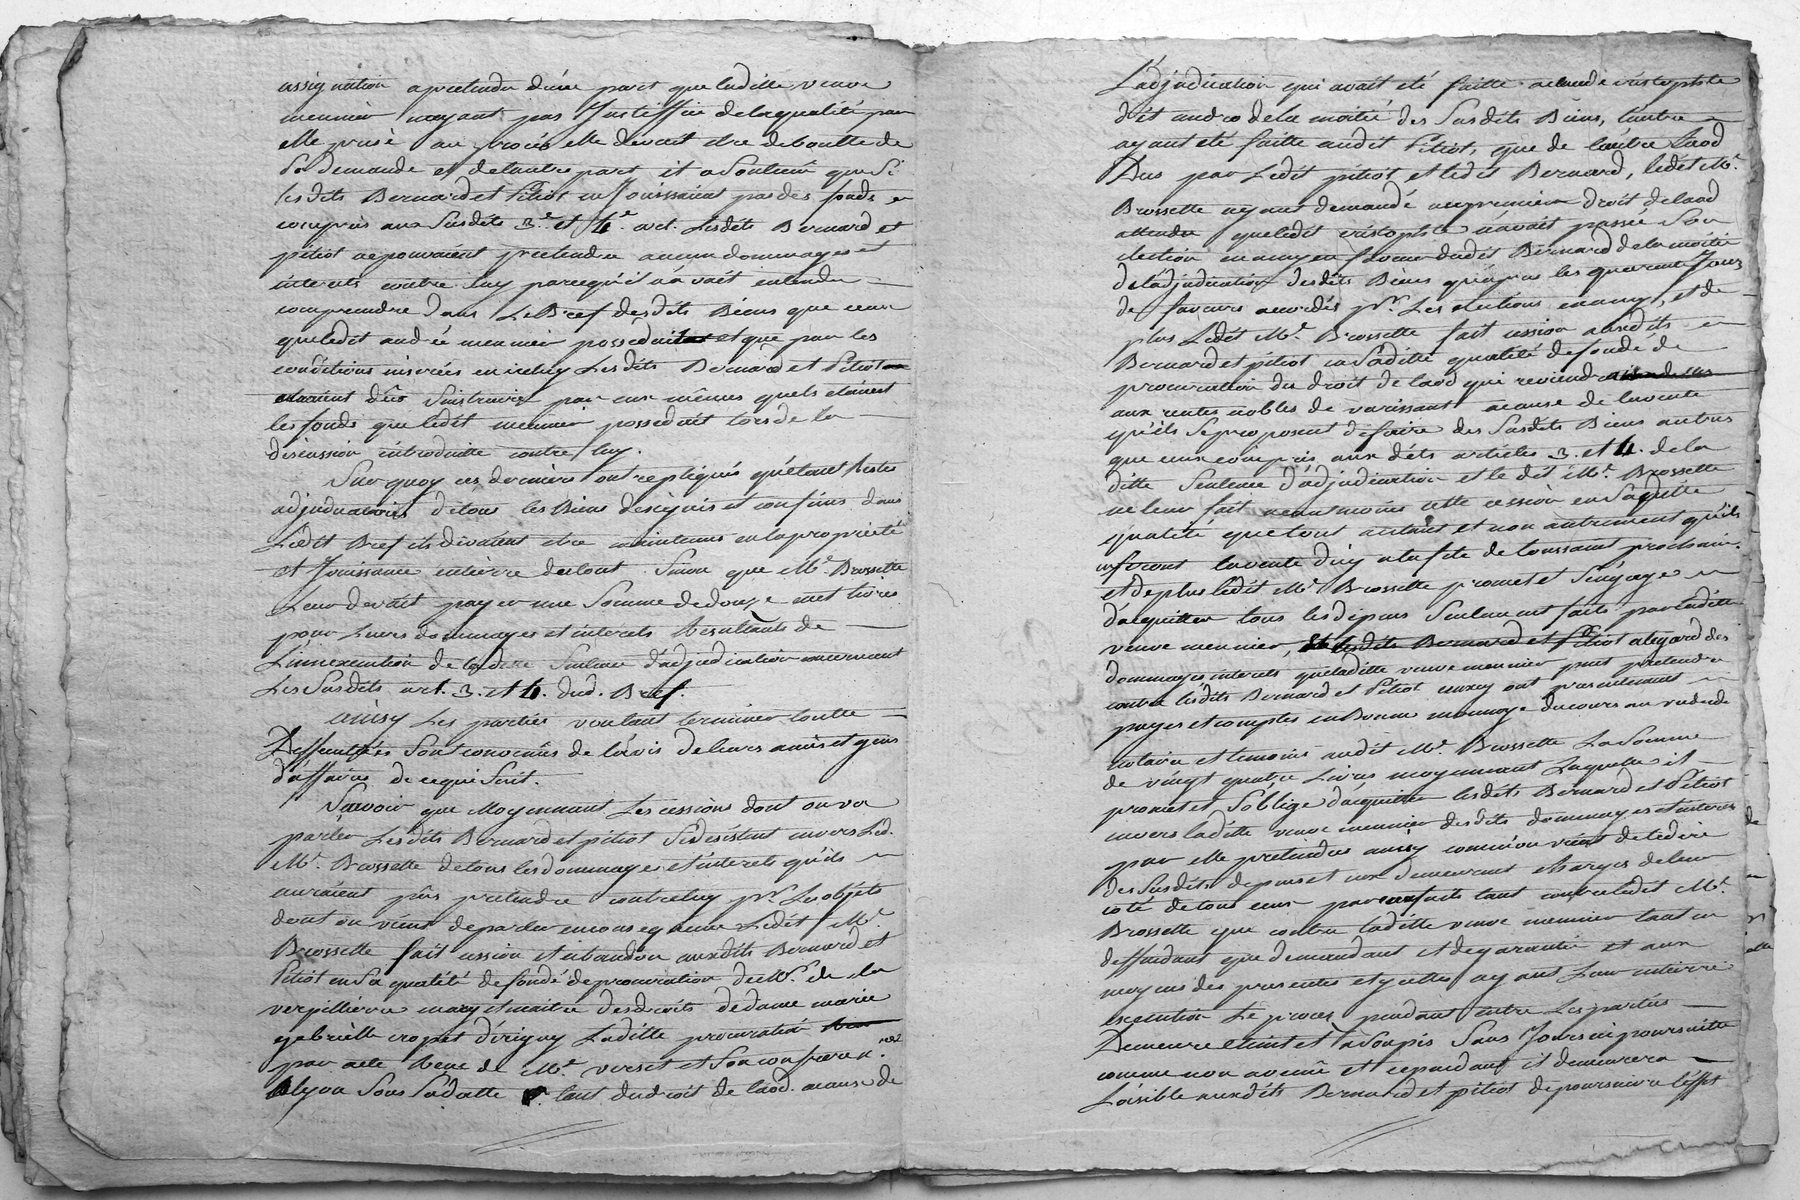 assignation a pretendu d'une part que laditte veuve
meunier n'ayant pas Justiffié de la qualité par
elle prise au procés elle devoit etre deboutté de
Sa Demande et de l'autre part il a Soutenu que Si
lesdits Bernard et Pitiot ne Jouissaient pas des fonds
compris aux Susdits 3.e et 4.e art. Lesdits Bernard et
pitiot ne pouvaient pretendre aucun dommages et
interets contre luy parcequ'il n'avait entendu
comprendre dans Le Bref desdits Biens que ceux
que ledit andré meunier possedait et que par les
conditions inserées en icelui Lesdits Bernard et Pitiot
etaient dûs S'instruire par eux mêmes quels étaient
les fonds que ledit meunier possedait lors de la
discussion introduitte contre luy.
Sur quoy ces derniers ont repliqués qu'étant Restés
adjudicataires de tous les Biens designés et confinés dans
Ledit Bref ils devaient etre maintenus en la proprieté
et Jouissance entière du tout Sinon que Mr. Brossette
Leur devait payer une Somme de douze cent livres
pour Leurs dommages et interets Résultants de
L'innexecution de ladite Sentence d'adjudication concernant
Les Susdits art. 3. et 4. dud. Bref.
ainsy Les parties voulant terminer toutte
Difficultées Sont convenûes de l'avis de leurs amis et gens
d'affaires de ce qui Suit.
Savoir que Moyennant Les cessions dont on va
parler Lesdits Bernard et pitiot Se desistent envers Led.
Mr. Brossette de tous les dommages et interets qu'ils
auraient pûs pretendre contre luy pr. Les objets
dont on vient de parler en consequence Ledit Mr.
Brossette fait cession et abandon auxdits Bernard et
Pitiot en Sa qualité de fondé de procuration de Mr. de la
verpillière mary et maitre des droits de dame marie
gabrielle cropet d'irigny Laditte procuration
par acte Recue de Me. verset et Son confrere n.res
a lyon Sous Sa datte tant du droit de laod. a cause de
L'adjudication qui avait eté faitte
dit andré de la moitié des Susdits Biens, l'autre
ayant été faitte audit Pitiot, que de l'autre Laod
Dus par Ledit pitiot et ledit Bernard, ledit Mr.
Brossette ayant demandé un premier droit de laod
attendu que ledit n'avait passée Son
élection en amy en faveur dudit Bernard de la moitié
de l'adjudication desdits Biens qu'après les quarente Jours
de faveurs accordés pr. Les elections en amys, et de
plus Ledit Mr. Brossette fait cession auxdits
Bernard et pitiot en Saditte qualité de fondé de
procuration du droit de laod qui reviendra
aux rentes nobles de varissant a cause de la vente
qu'ils Se proposent de faire des Susdits Biens autres
que ceux compris aux dits articles 3. et 4. de la
ditte Sentence d'adjudication et le dit Mr. Brossette
ne leur fait neantmoins cette cession en Saditte
qualité que tout autant et non autrement qu'ils
en feront la vente d'icy a la fete de toussaint prochain.
et de plus ledit Mr. Brossette promet et S'engage
d'acquitter tous les depens Seulement faits par laditte
veuve meunier, a legard des
dommages interets que laditte veuve meunier peut pretendre
contre lesdits Bernard et Pitiot iceux cy ont presentement
payés et comptés en Bonne monnoye du cours au vu de
notaire et temoins audit Mr. Brossette La Somme
de vingt quatre Livres moyennant Laquelle il
promet et S'oblige d'acquitter lesdits Bernard et Pitiot
envers laditte veuve meunier desdits dommages et interets
par elle pretendus ainsy comme on vient de le dire
des Susdits depens et non demeurent chargés de leur
coté de tous ceux par eux faits tant contre ledit Mr.
Brossette que contre laditte veuve meunier tant en
deffendant que demandant et de garantie et aux
moyens des presentes et ycelles ayant Leur entière
execution Le procés pendant entre Les parties
Demeure eteint et assoupis Sans
comme non avenû et cependant il demeurera
Loisible auxdits Bernard et pitiot de poursuivre l'effet